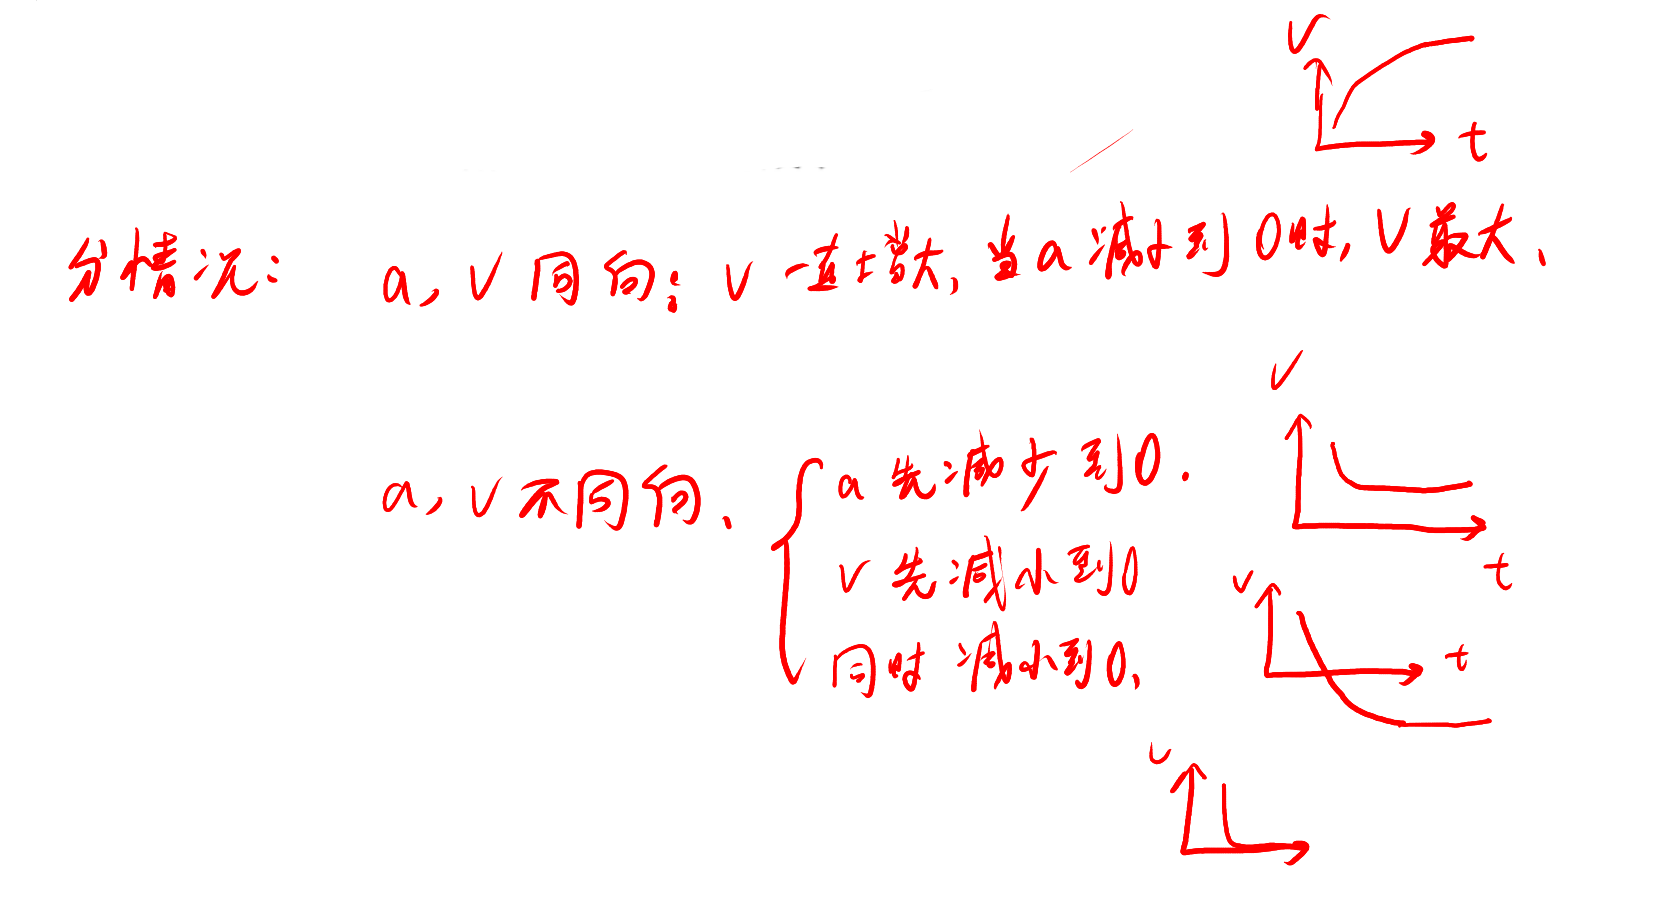 V
t
分情况: a, v 同向: v 一直增大, 当 a 减小到 0时, V 最大、
V
a, v 不同向、 a 先减少到0.
t
v 先减小到0
V
t
同时减小到0、
V